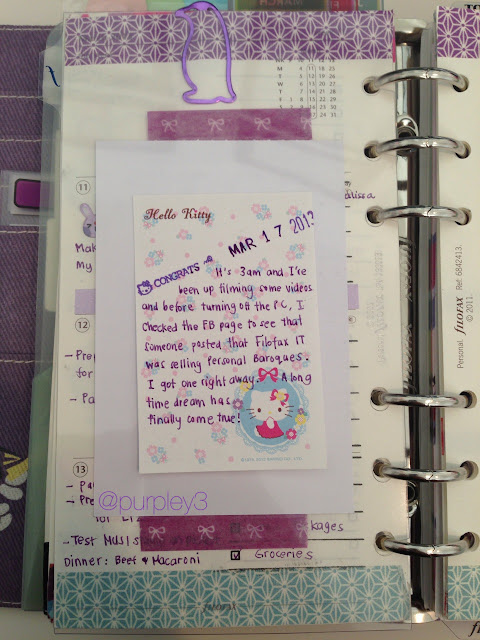 M 4 11 18 25
T 5 12 19 26
W 6 13 20 27
T 7 14 21 28
F 1 8 15 22
S 2 9 16 23 30
11
Mak
My
alissa
Hello Kitty
MAR 17 2013
CONGRATS
It's 3am and I've
been up filming some videos
and before turning off the PC, I
checked the FB page to see that
someone posted that Filofax IT
was selling Personal Baroques.
I got one right away. A long
time dream has
finally come true!
12
- Prep
for
- Pa
13
- Pa
- Pre
@purpley3
kages
- Test MUJI
Dinner: Beef & Macaroni
Groceries
filofax
Personal. filofax Ref. 6842413.
© 2011.